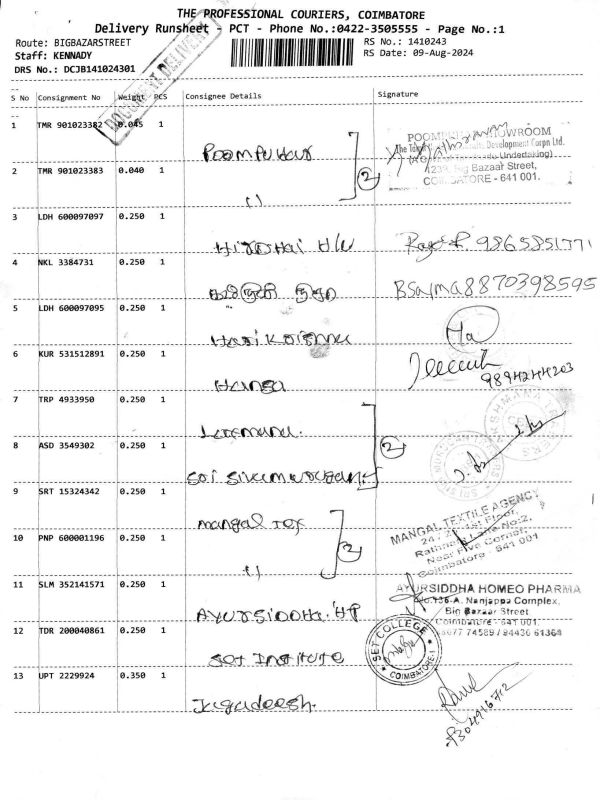 THE PROFESSIONAL COURIERS, COIMBATORE
Delivery Runsheet - PCT - Phone No.:0422-3505555 - Page No.:1
Route: BIGBAZARSTREET
RS No.: 1410243
Staff: KENNADY
RS Date: 09-Aug-2024
DRS No.: DCJB141024301
DOCUMENT DELIVERY
S No Consignment No Weight PCS Consignee Details Signature
1 TMR 901023382 0.045 1
Poompuhar
2
POOMPUHAR SHOWROOM
Development Corpn Ltd.
Undertaking)
Big Bazaar Street,
COIMBATORE - 641 001.
2 TMR 901023383 0.040 1
"
3 LDH 600097097 0.250 1
H/W
9865851771
4 NKL 3384731 0.250 1
8870398595
5 LDH 600097095 0.250 1
Hari Krishna
Ha
6 KUR 531512891 0.250 1
Hansa
9894244203
7 TRP 4933950 0.250 1
Laxmana.
2
8 ASD 3549302 0.250 1
Sri Sivamurugan
9 SRT 15324342 0.250 1
Mangal Tex
2
MANGAL TEXTILE AGENCY
1st Floor,
Lane No:2,
Near Five Corner,
Coimbatore - 641 001
10 PNP 600001196 0.250 1
"
11 SLM 352141571 0.250 1
AYURSIDDHA HP
AYURSIDDHA HOMEO PHARMA
No.136-A, Nanjappa Complex,
Big Bazaar Street
Coimbatore - 641 001.
74589 / 94430 61364
12 TDR 200040861 0.250 1
Set Institute
SET COLLEGE
COIMBATORE-1
13 UPT 2229924 0.350 1
Jagadeesh.